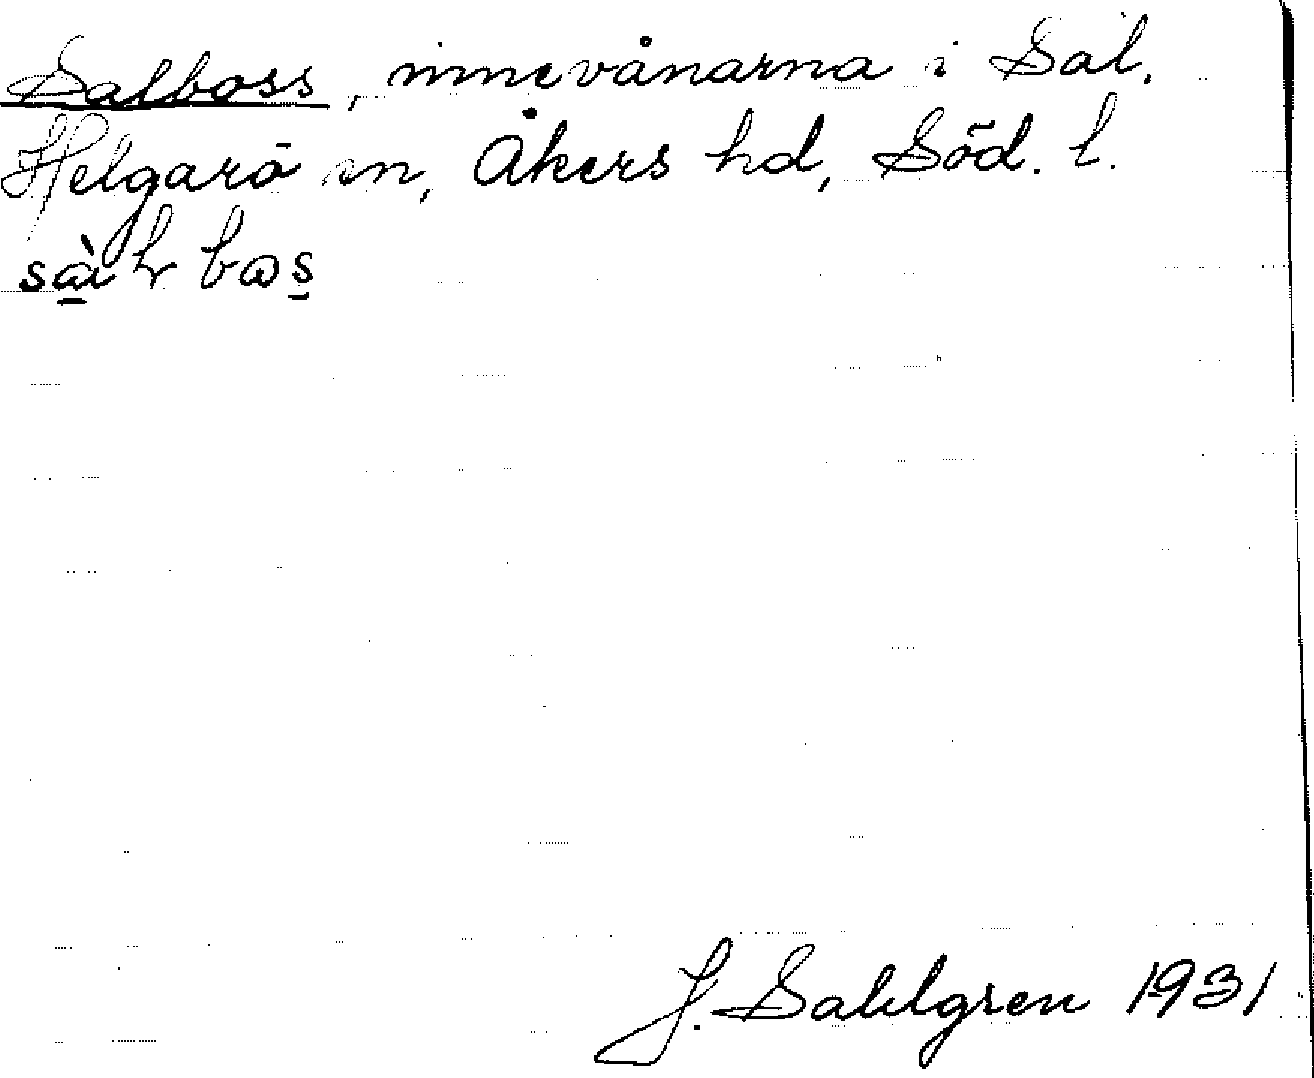 Salboss, innevånarna i Sal.
Helgarö sn, Åkers hd, Söd. l.
J. Sahlgren 1931